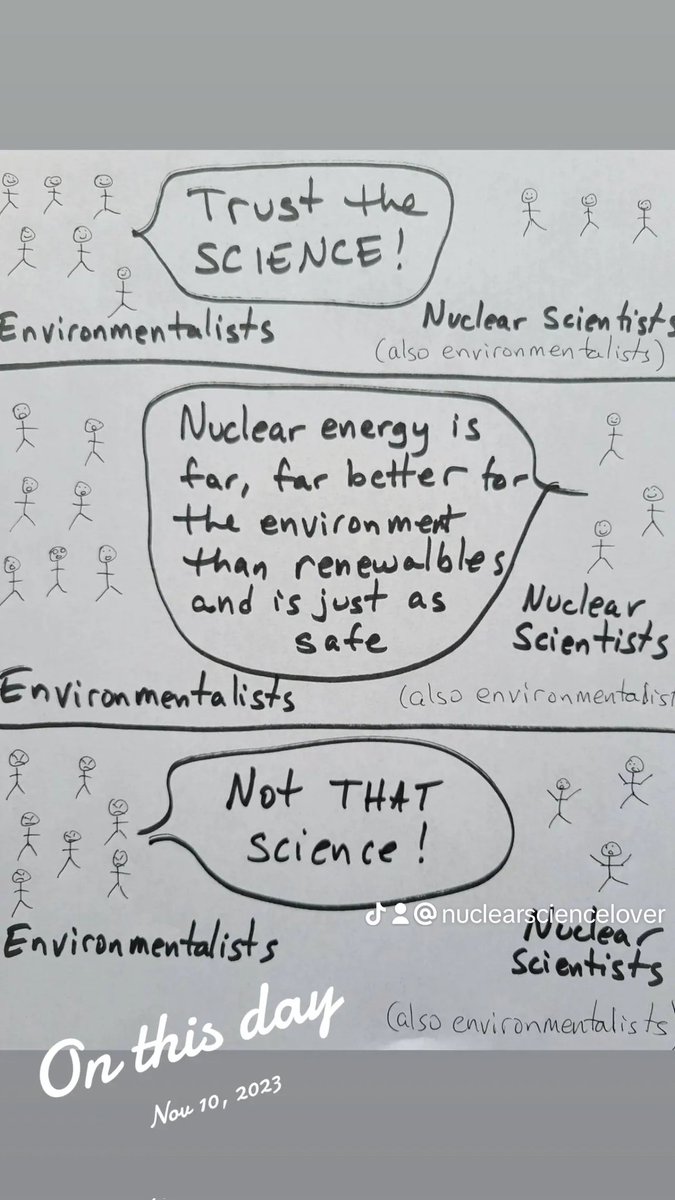 Trust the
SCIENCE!
Environmentalists
Nuclear Scientists
(also environmentalists)
Nuclear energy is
far, far better for
the environment
than renewalbles
and is just as
safe
Nuclear
Scientists
Environmentalists
(also environmentalist
Not THAT
science!
@nuclearsciencelover
Environmentalists
Nuclear
Scientists
(also environmentalists)
On this day
Nov 10, 2023